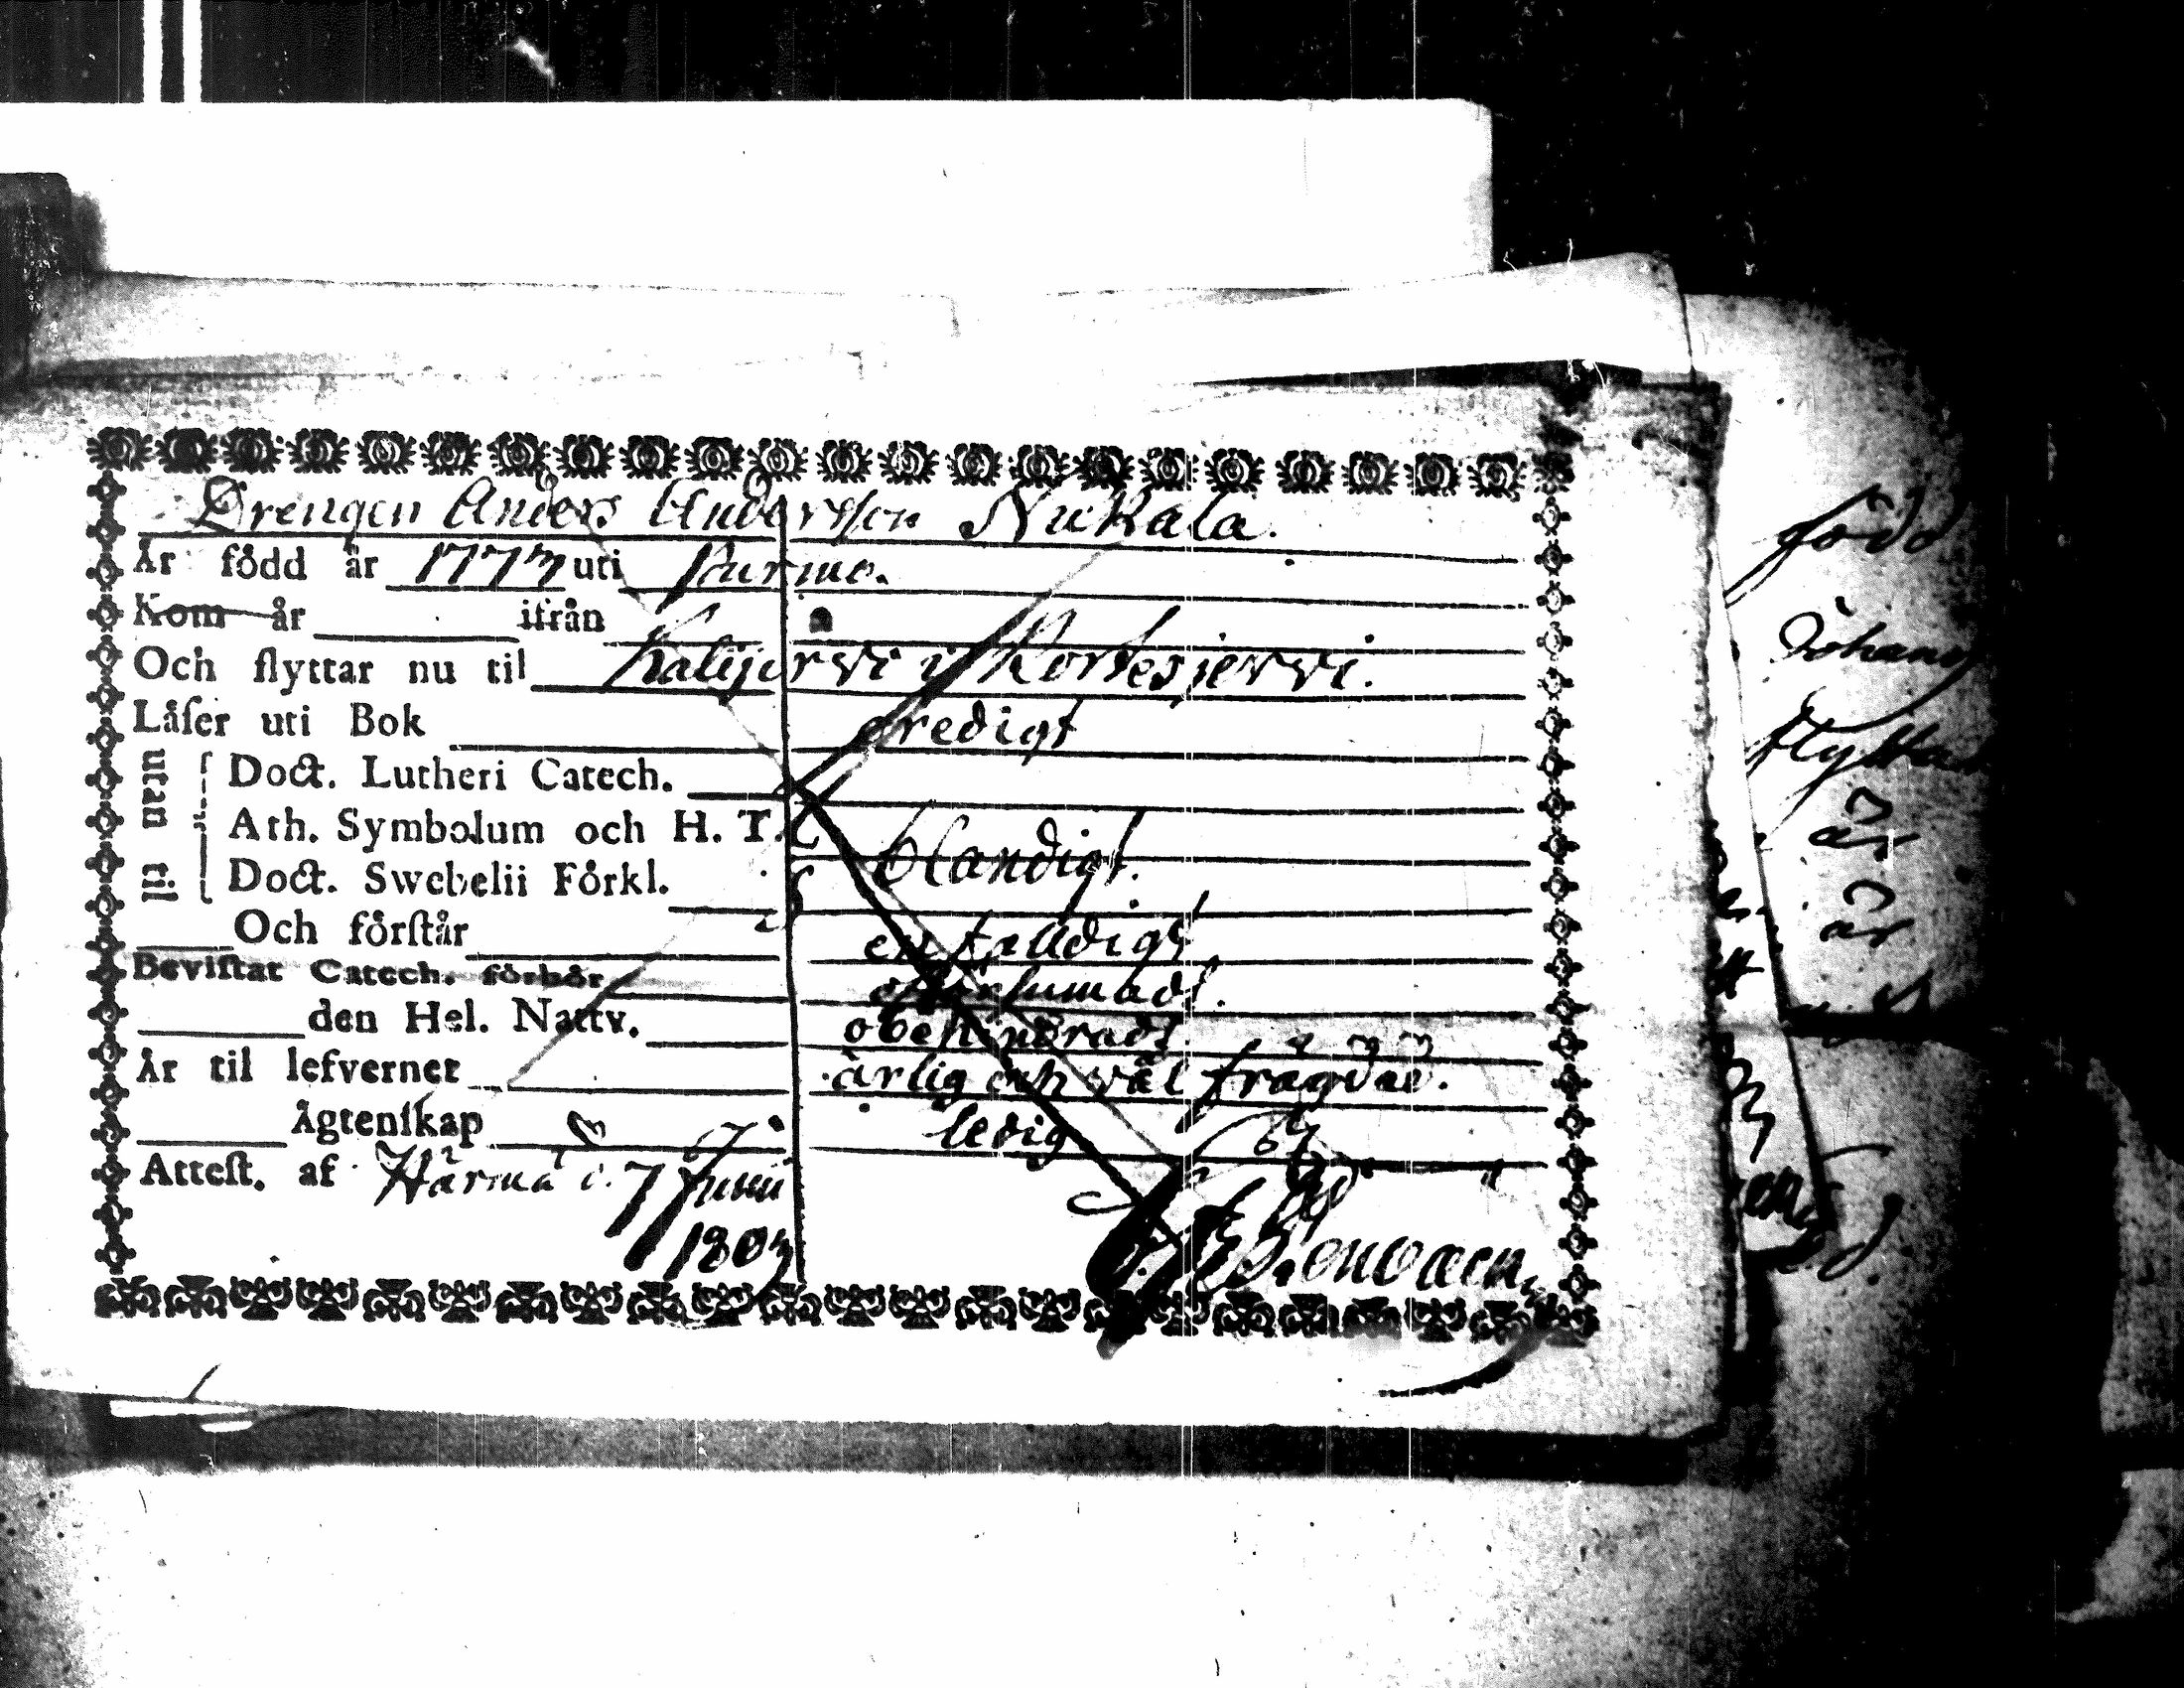 Drengen Anders Andersson Nukala.
År född år 1773 uti Purmo.
Kom år ifrån
Och flyttar nu til Kalijervi i Kortesjervi.
Låſer uti Bok redigt
utan til
Doct. Lutheri Catech.
Ath. Symbolum och H. T.
Doct. Swebelii Förkl. ständigt.
Och förſtår enfalldigt
Beviſtat Catech. förhör oförsumadt.
den Hel. Nattv. obehindradt
År til lefvernet ärlig och väl frägdad.
Ägtenſkap ledig
Atteſt. af Härmä d. 7 Junii
1803
född
Johans
flyttar
är
är